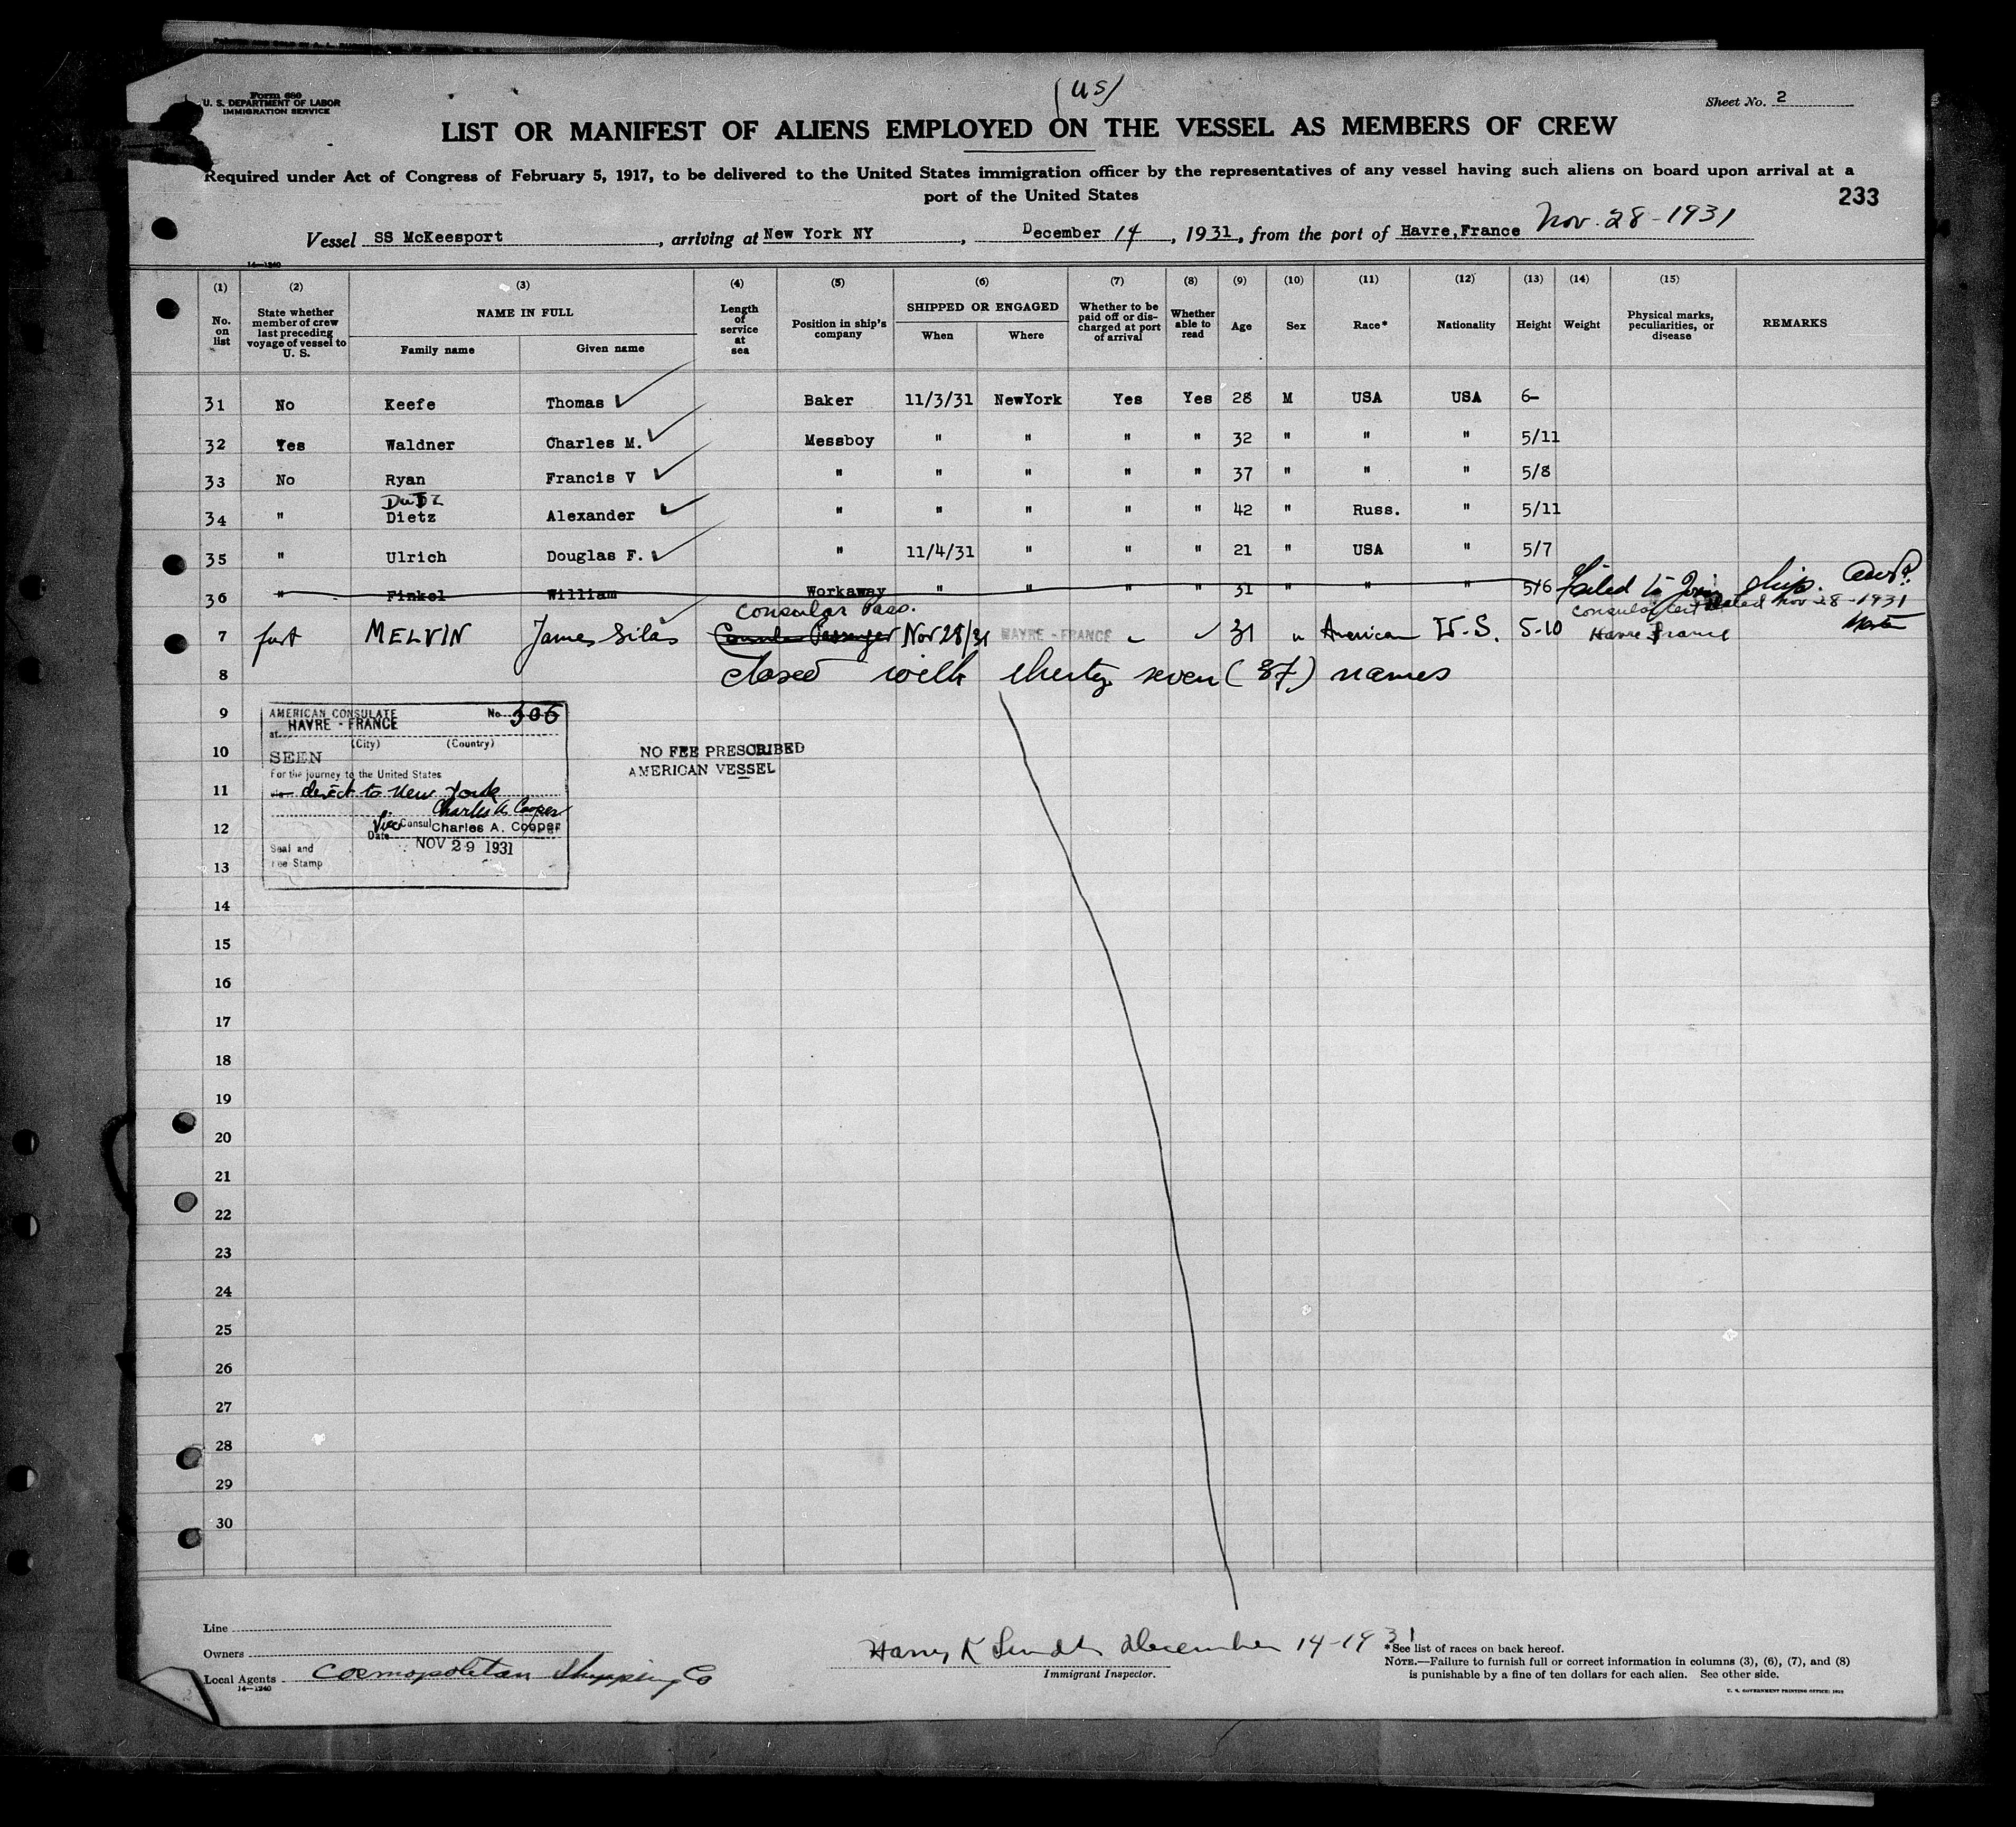 (US)
Form 680
U. S. DEPARTMENT OF LABOR
IMMIGRATION SERVICE
Sheet No. 2
LIST OR MANIFEST OF ALIENS EMPLOYED ON THE VESSEL AS MEMBERS OF CREW
Required under Act of Congress of February 5, 1917, to be delivered to the United States immigration officer by the representatives of any vessel having such aliens on board upon arrival at a
port of the United States
233
Vessel SS McKeesport, arriving at New York NY, December 14, 1931, from the port of Havre, France Nov. 28-1931
14—1240
(1) (2) (3) (4) (5) (6) (7) (8) (9) (10) (11) (12) (13) (14) (15)
No. on list State whether member of crew last preceding voyage of vessel to U. S. NAME IN FULL Family name Given name Length of service at sea Position in ship's company SHIPPED OR ENGAGED When Where Whether to be paid off or discharged at port of arrival Whether able to read Age Sex Race* Nationality Height Weight Physical marks, peculiarities, or disease REMARKS
31 No Keefe Thomas ✓ Baker 11/3/31 NewYork Yes Yes 28 M USA USA 6-
32 Yes Waldner Charles M. ✓ Messboy " " " " 32 " " " 5/11
33 No Ryan Francis V ✓ " " " " " 37 " " " 5/8
34 " Dietz Alexander ✓ " " " " " 42 " Russ. " 5/11
35 " Ulrich Douglas F. ✓ " 11/4/31 " " " 21 " USA " 5/7
36 " Finkel William Workaway " " " " 31 " " " 5/6 Failed to Join ship.
Consular Pass.
7 first MELVIN James Silas Consular Passenger Nov 28/31 HAVRE - FRANCE " ✓ 31 " American U.S. 5-10 Dated Nov 28-1931
Havre France
8 closed with thirty seven (37) names
9
10
11
12
13
14
15
16
17
18
19
20
21
22
23
24
25
26
27
28
29
30
AMERICAN CONSULATE No. 306
at HAVRE - FRANCE
(City) (Country)
SEEN
For the journey to the United States
direct to New York
Charles A. Cooper
Vice Consul Charles A. Cooper
Date NOV 29 1931
Seal and
Fee Stamp
NO FEE PRESCRIBED
AMERICAN VESSEL
Line
Owners
Local Agents Cosmopolitan Shipping Co
14—1240
Harry K December 14-1931
Immigrant Inspector.
*See list of races on back hereof.
NOTE.—Failure to furnish full or correct information in columns (3), (6), (7), and (8)
is punishable by a fine of ten dollars for each alien. See other side.
U. S. GOVERNMENT PRINTING OFFICE: